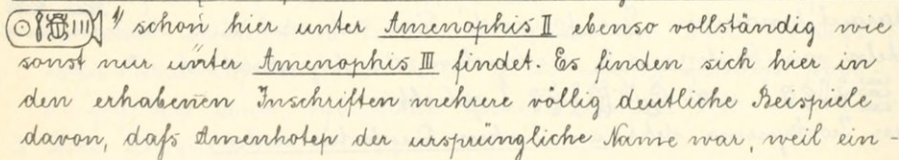 " schon hier unter Amenophis II ebenso vollständig wie
sonst nur unter Amenophis III findet. Es finden sich hier in
den erhabenen Inschriften mehrere völlig deutliche Beispiele
davon, daſs Amenhotep der ursprüngliche Name war, weil ein-